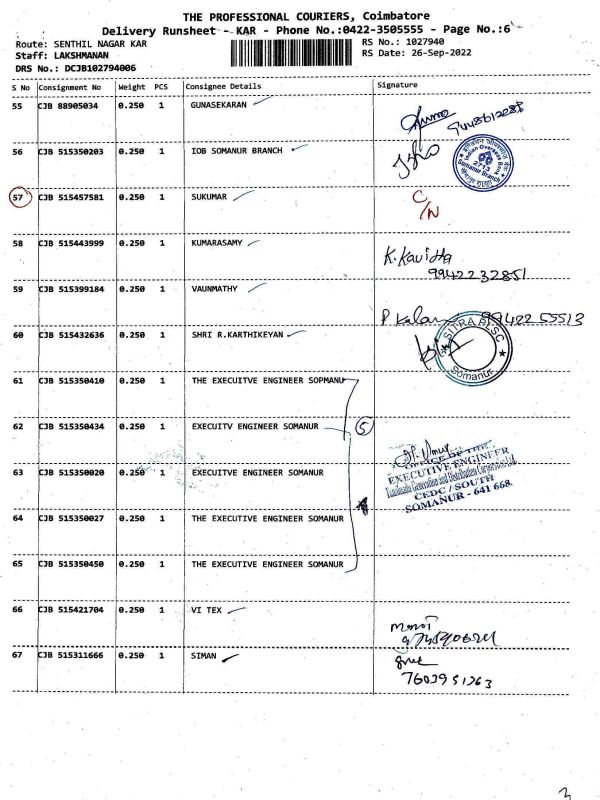 THE PROFESSIONAL COURIERS, Coimbatore
Delivery Runsheet - KAR - Phone No.:0422-3505555 - Page No.:6
Route: SENTHIL NAGAR KAR RS No.: 1027940
Staff: LAKSHMANAN RS Date: 26-Sep-2022
DRS No.: DCJB102794006
S No Consignment No Weight PCS Consignee Details Signature
55 CJB 88905034 0.250 1 GUNASEKARAN
56 CJB 515350203 0.250 1 IOB SOMANUR BRANCH
Indian Overseas Bank
2773
Somanur Branch
57 CJB 515457581 0.250 1 SUKUMAR C/N
58 CJB 515443999 0.250 1 KUMARASAMY K. Kavitha
9942232851
59 CJB 515399184 0.250 1 VAUNMATHY P Kalam 9942255513
60 CJB 515432636 0.250 1 SHRI R.KARTHIKEYAN
SITRA
Somanur
61 CJB 515350410 0.250 1 THE EXECUITVE ENGINEER SOPMANU
62 CJB 515350434 0.250 1 EXECUITV ENGINEER SOMANUR 5
OFFICE OF THE
EXECUTIVE ENGINEER
Tamilnadu Generation and Distribution Corporation Ltd.
CEDC / SOUTH
SOMANUR - 641 668.
63 CJB 515350020 0.250 1 EXECUITVE ENGINEER SOMANUR
64 CJB 515350027 0.250 1 THE EXECUTIVE ENGINEER SOMANUR
65 CJB 515350450 0.250 1 THE EXECUTIVE ENGINEER SOMANUR
66 CJB 515421704 0.250 1 VI TEX
67 CJB 515311666 0.250 1 SIMAN
3